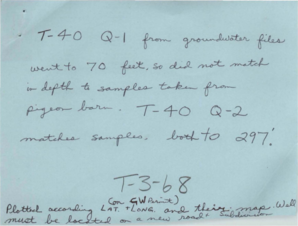 T-40 Q-1 from groundwater files
went to 70 feet, so did not match
in depth to samples taken from
pigeon barn. T-40 Q-2
matches samples. both to 297'.
T-3-68
(on GW Print)
Plotted according LAT. + LONG. and their map. Well
must be located on a new road + subdivision